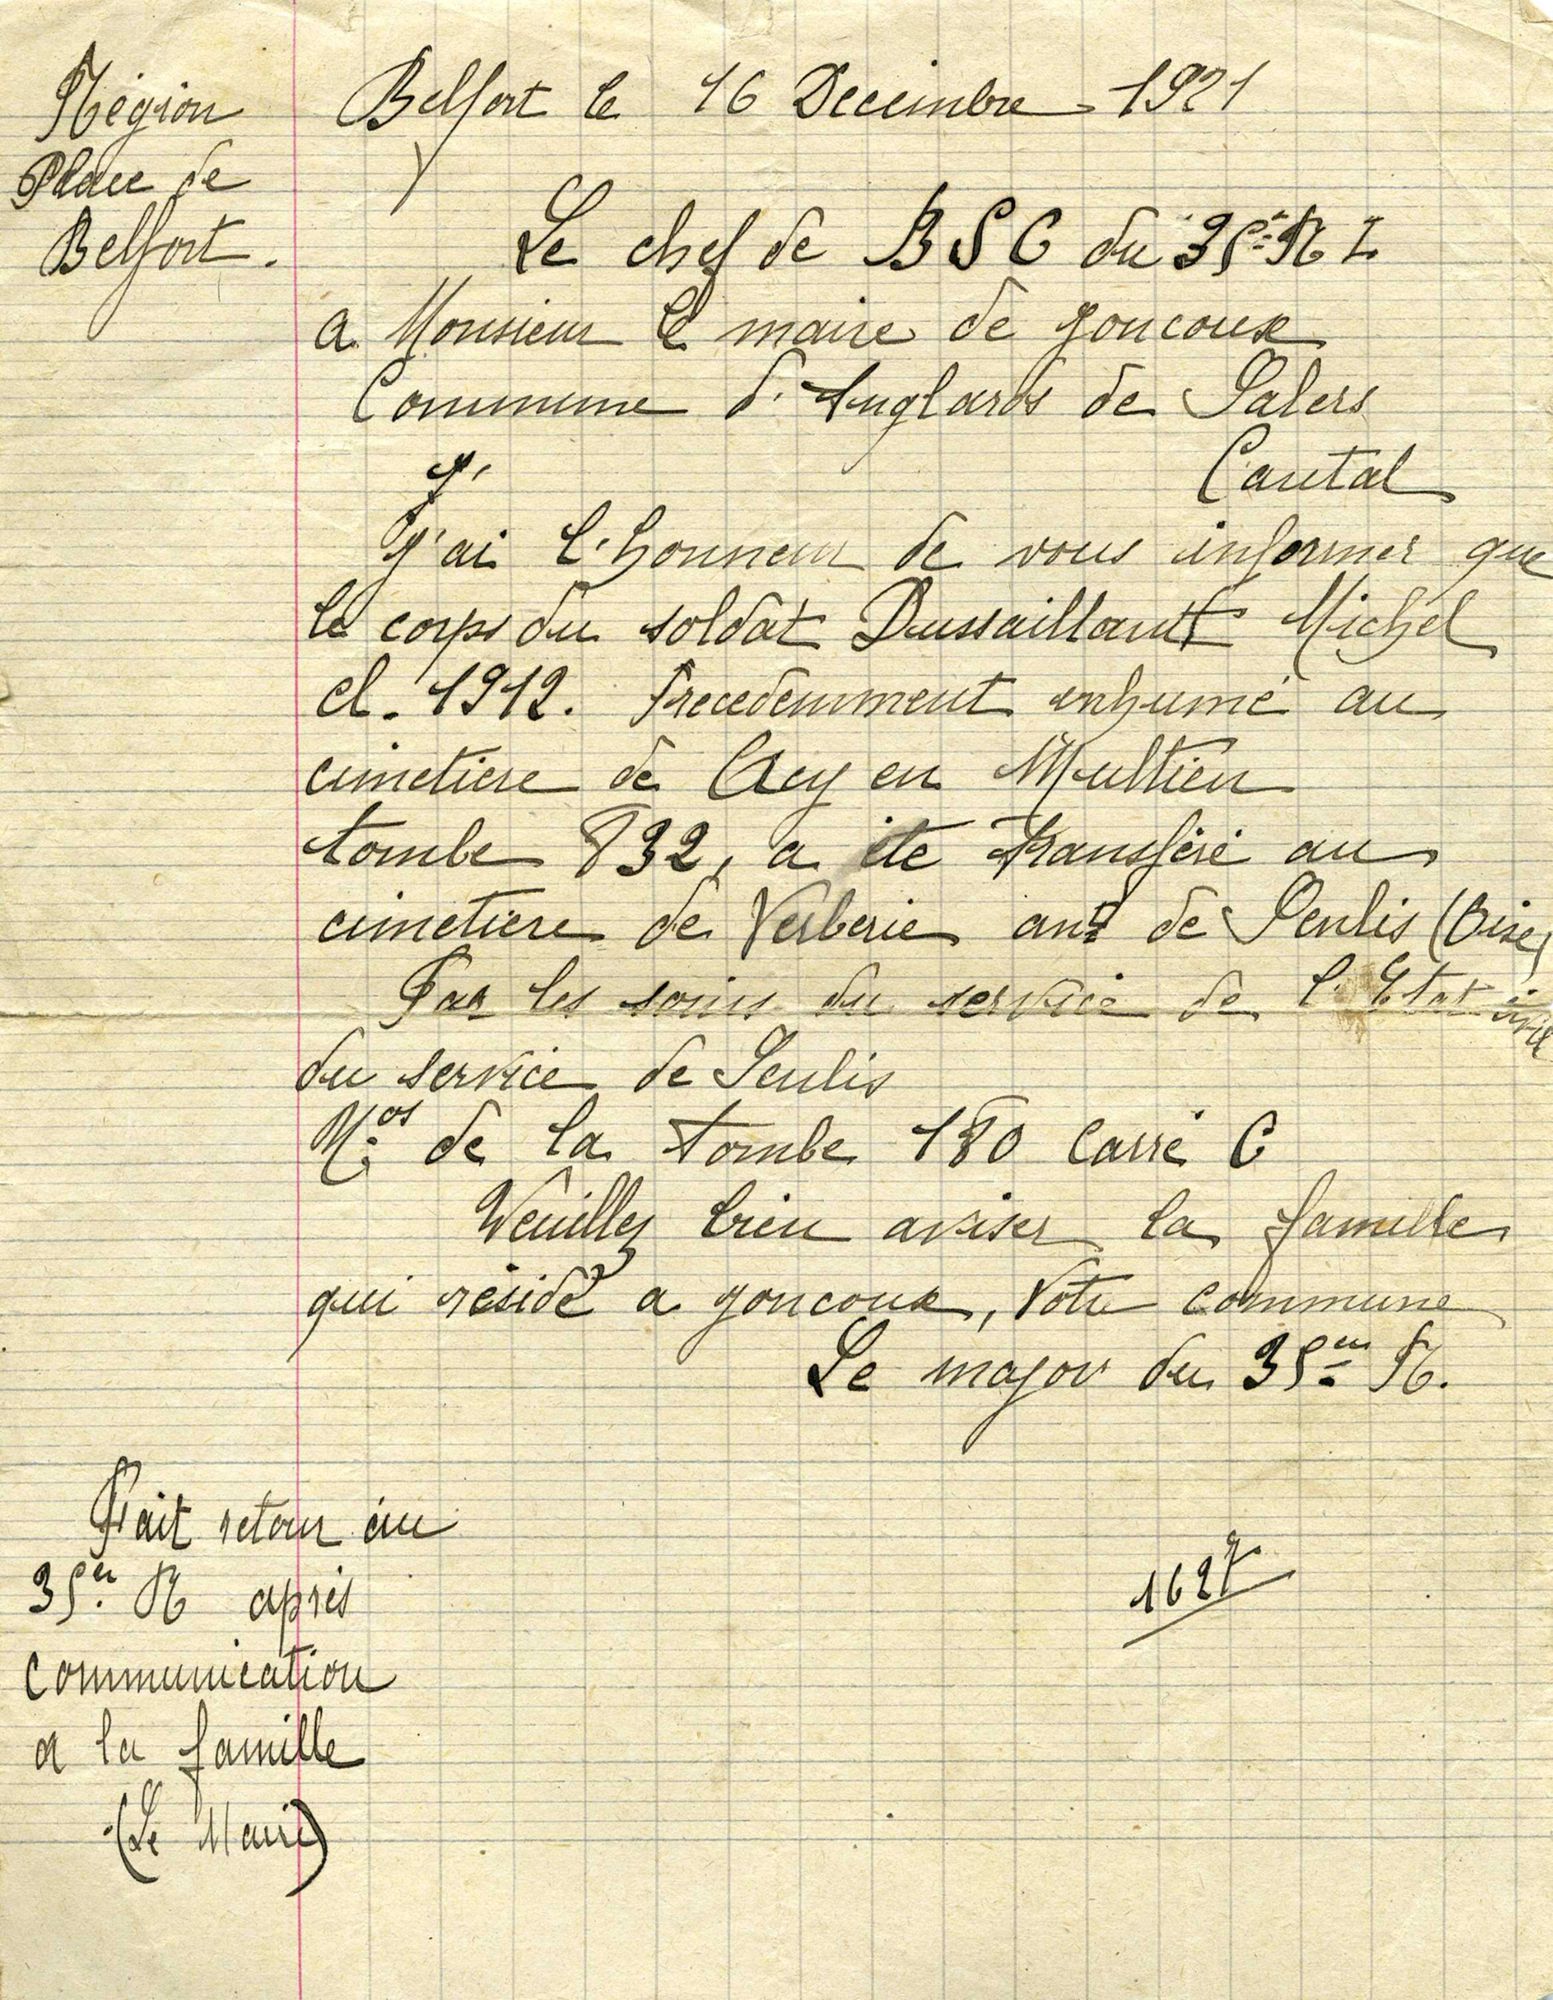 Région
Place de
Belfort.
Belfort le 16 Decembre 1921
Le chef de BSC du 35e R I
a Monsieur le maire de joncoux
Commune d'Anglards de Salers
Cantal
J'ai l'honneur de vous informer que
le corps du soldat Dussaillant Michel
cl. 1912. Precedemment inhumé au
cimetiere de Acy en Multien
tombe 832, a été transféré au
cimetiere de Verberie ant de Senlis (Oise)
Par les soins du service de l'Etat civil
du service de Senlis
Nos de la tombe 180 Carré C
Veuillez bien aviser la famille
qui réside a joncoux, Votre commune
Le major du 35em R.
Fait retour au
35em R après
communication
a la famille
(Le Maire)
1627